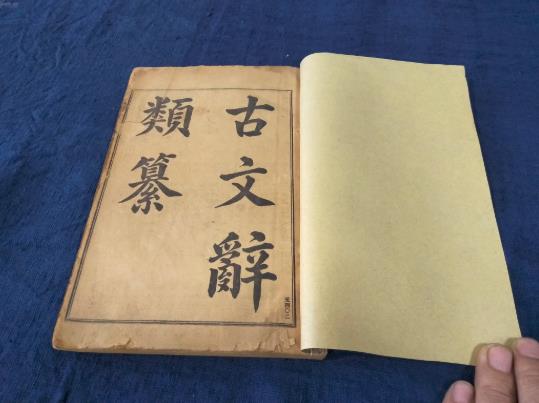 古文辭
類纂